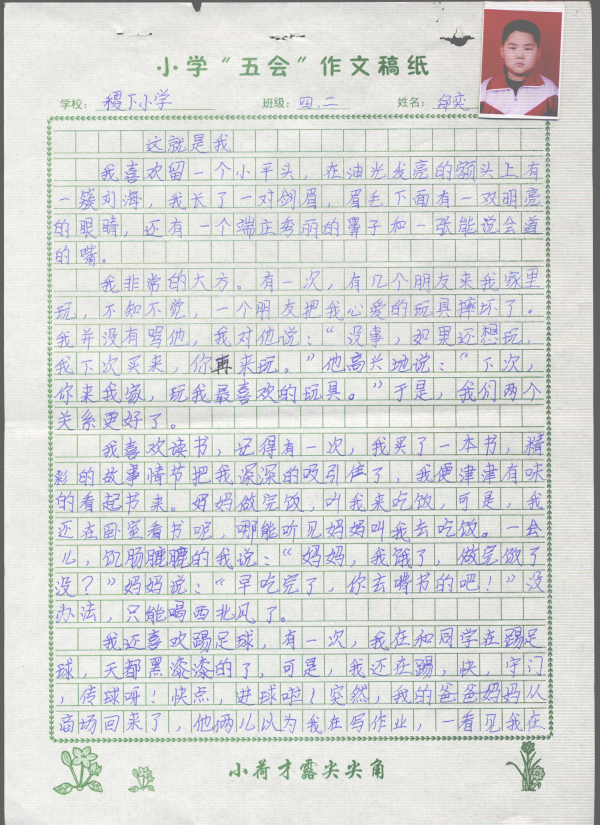 小学“五会”作文稿纸
学校：稷下小学 班级：四.二 姓名：郑奕
这就是我
我喜欢留一个小平头，在油光发亮的额头上有
一簇刘海，我长了一对剑眉，眉毛下面有一双明亮
的眼睛，还有一个端庄秀丽的鼻子和一张能说会道
的嘴。
我非常的大方。有一次，有几个朋友来我家里
玩，不知不觉，一个朋友把我心爱的玩具摔坏了。
我并没有骂他，我对他说：“没事，如果还想玩，
我下次买来，你再来玩。”他高兴地说：“下次，
你来我家，玩我最喜欢的玩具。”于是，我们两个
关系更好了。
我喜欢读书，记得有一次，我买了一本书，精
彩的故事情节把我深深的吸引住了，我便津津有味
的看起书来。妈妈做完饭，叫我来吃饭，可是，我
还在卧室看书呢，哪能听见妈妈叫我去吃饭。一会
儿，饥肠辘辘的我说：“妈妈，我饿了，做完饭了
没？”妈妈说：“早吃完了，你去啃书的吧！”没
办法，只能喝西北风了。
我还喜欢踢足球，有一次，我在和同学在踢足
球，天都黑漆漆的了，可是，我还在踢，快，守门
，传球呀！快点，进球啦！突然，我的爸爸妈妈从
商场回来了，他俩儿以为我在写作业，一看见我在
小荷才露尖尖角